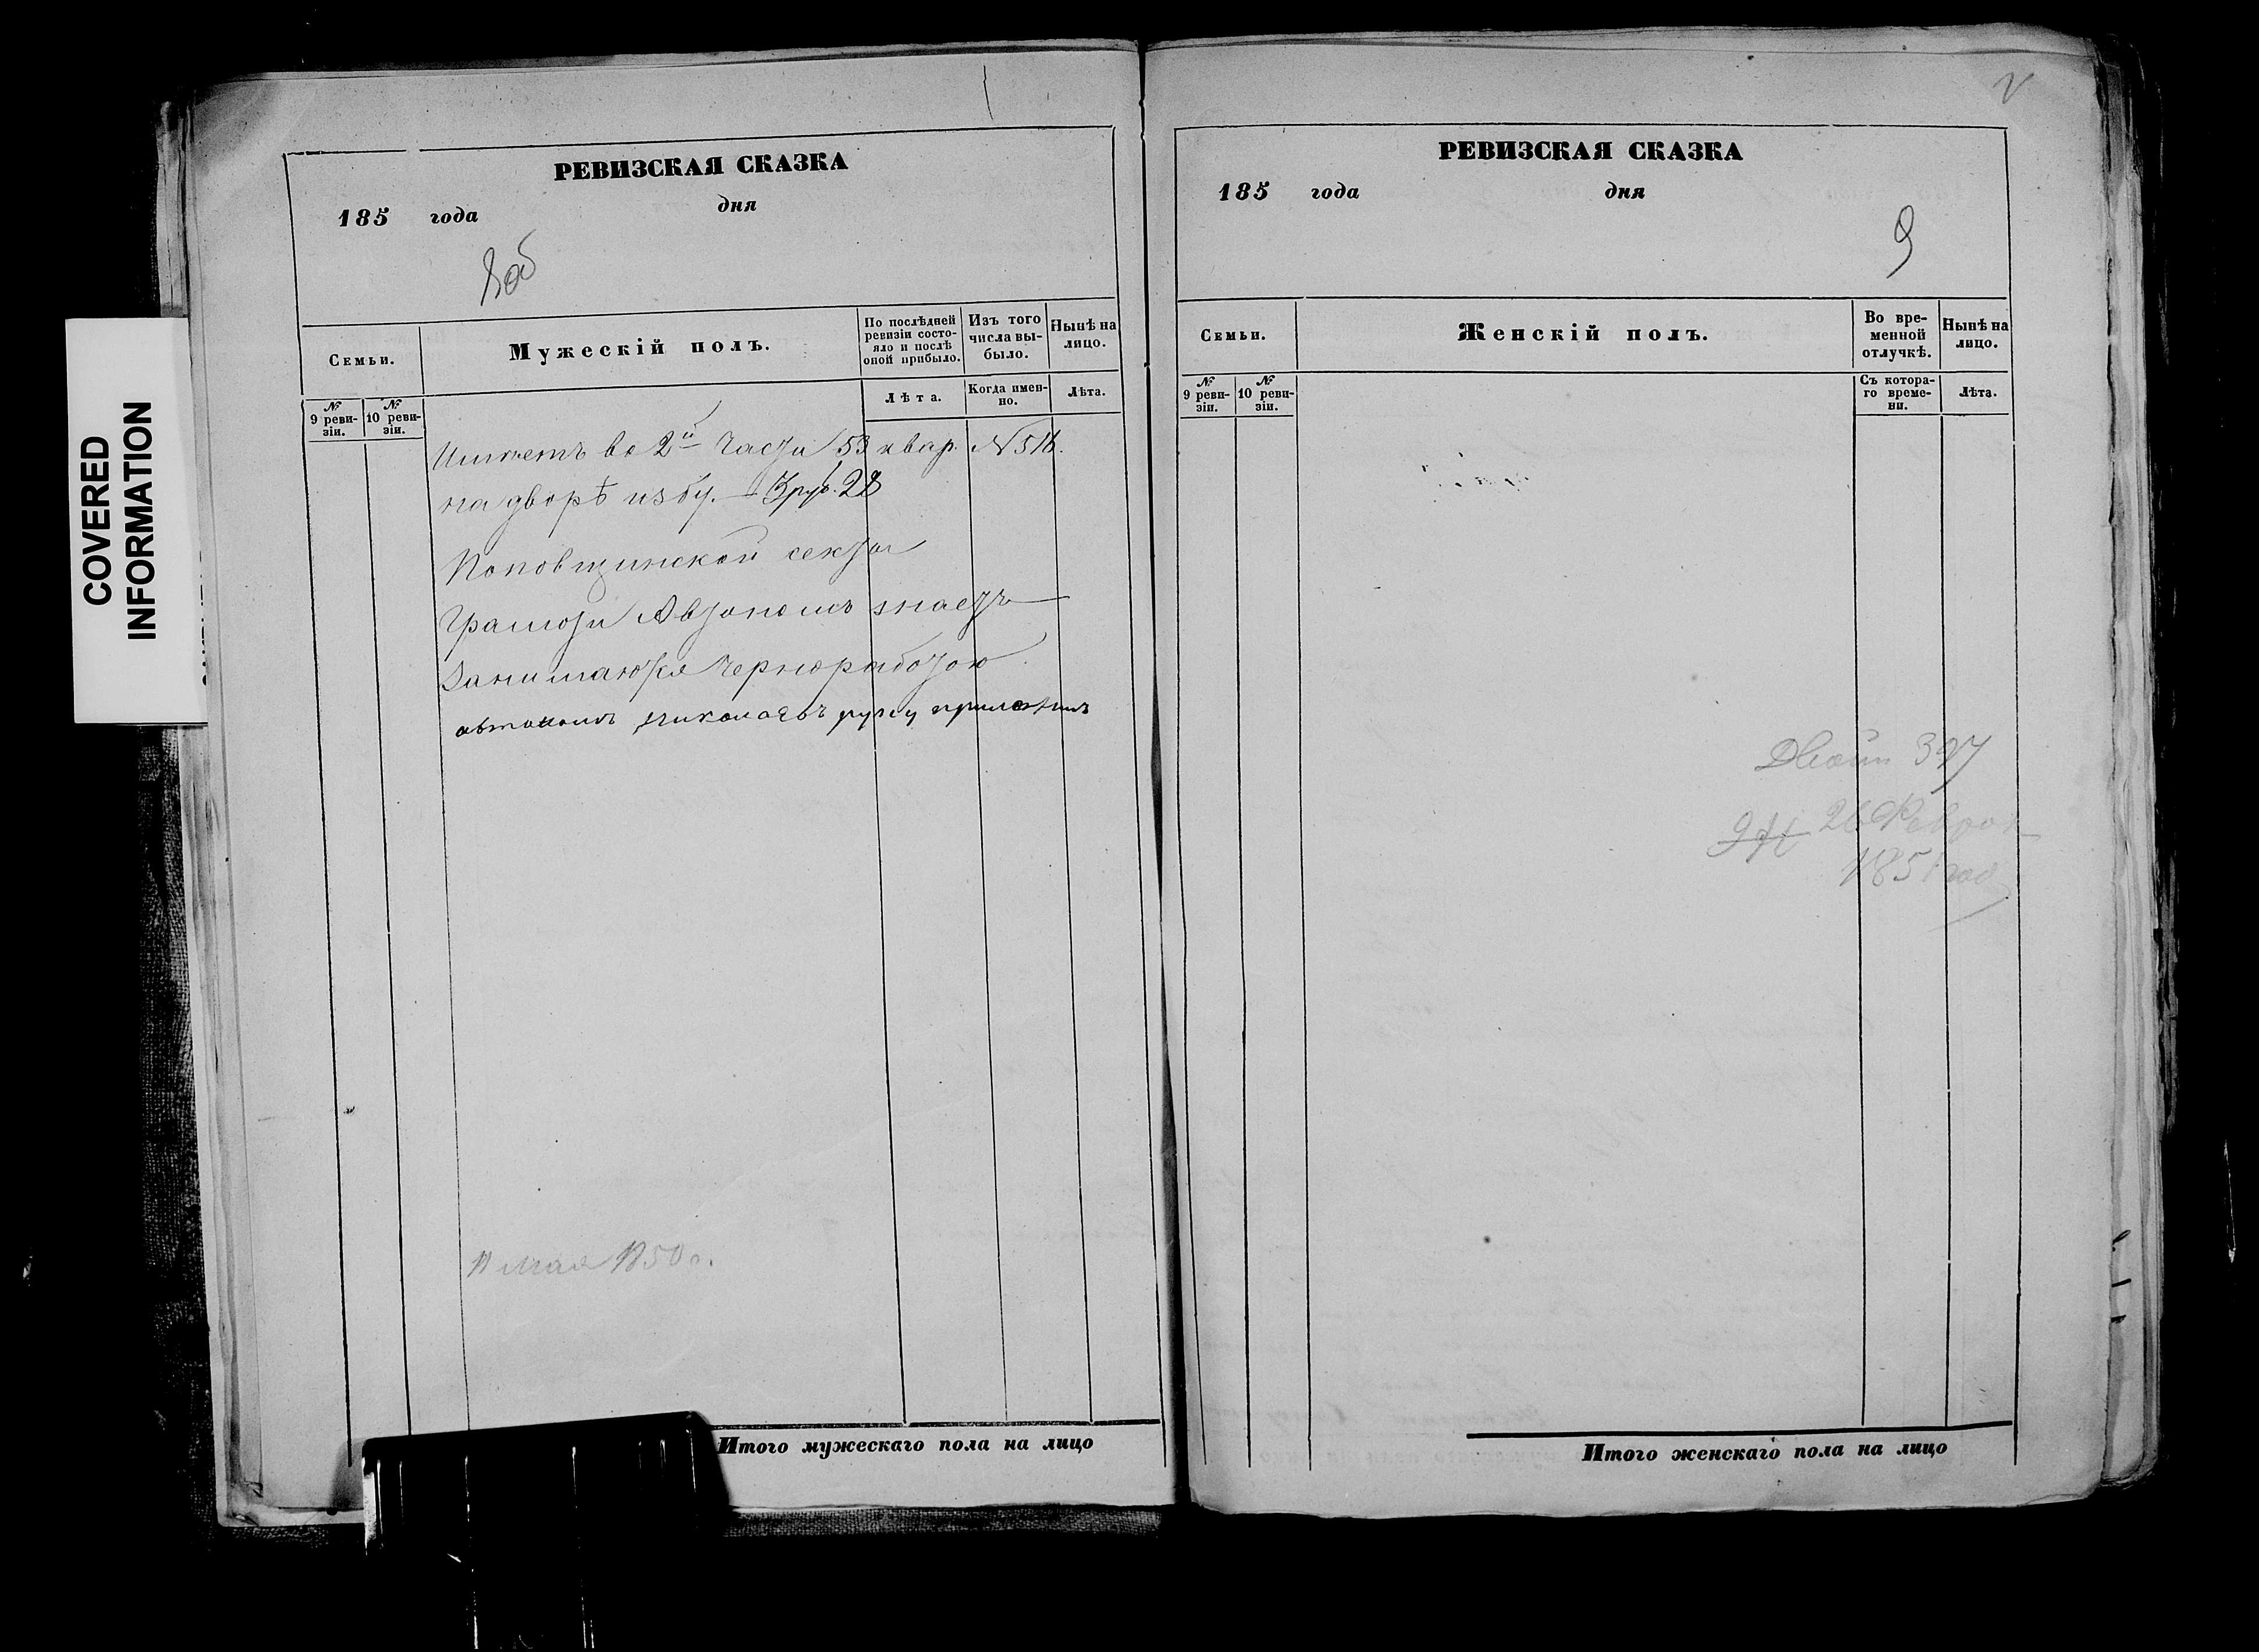 COVERED
INFORMATION
РЕВИЗСКАЯ СКАЗКА
185 года дня
Семьи.
Мужескій полъ.
По послѣдней ревизіи состояло и послѣ оной прибыло.
Изъ того числа выбыло.
Нынѣ на лицо.
№ 9 ревизіи.
№ 10 ревизіи.
Лѣта.
Когда именно.
Лѣта.
Имѣетъ во 2й части 53 квар. N 516.
на дворѣ избу. — 3 руб. 28
Поповщинской секты
Грамоти Автономъ знаетъ
Занимаются черноработою
автономъ николаевъ руку приложилъ
11 мая 1850 г.
Итого мужескаго пола на лицо
РЕВИЗСКАЯ СКАЗКА
185 года дня
9
Семьи.
Женскій полъ.
Во временной отлучкѣ.
Нынѣ на лицо.
№ 9 ревизіи.
№ 10 ревизіи.
Съ котораго времени.
Лѣта.
397
26 Феврал
1851 год
Итого женскаго пола на лицо